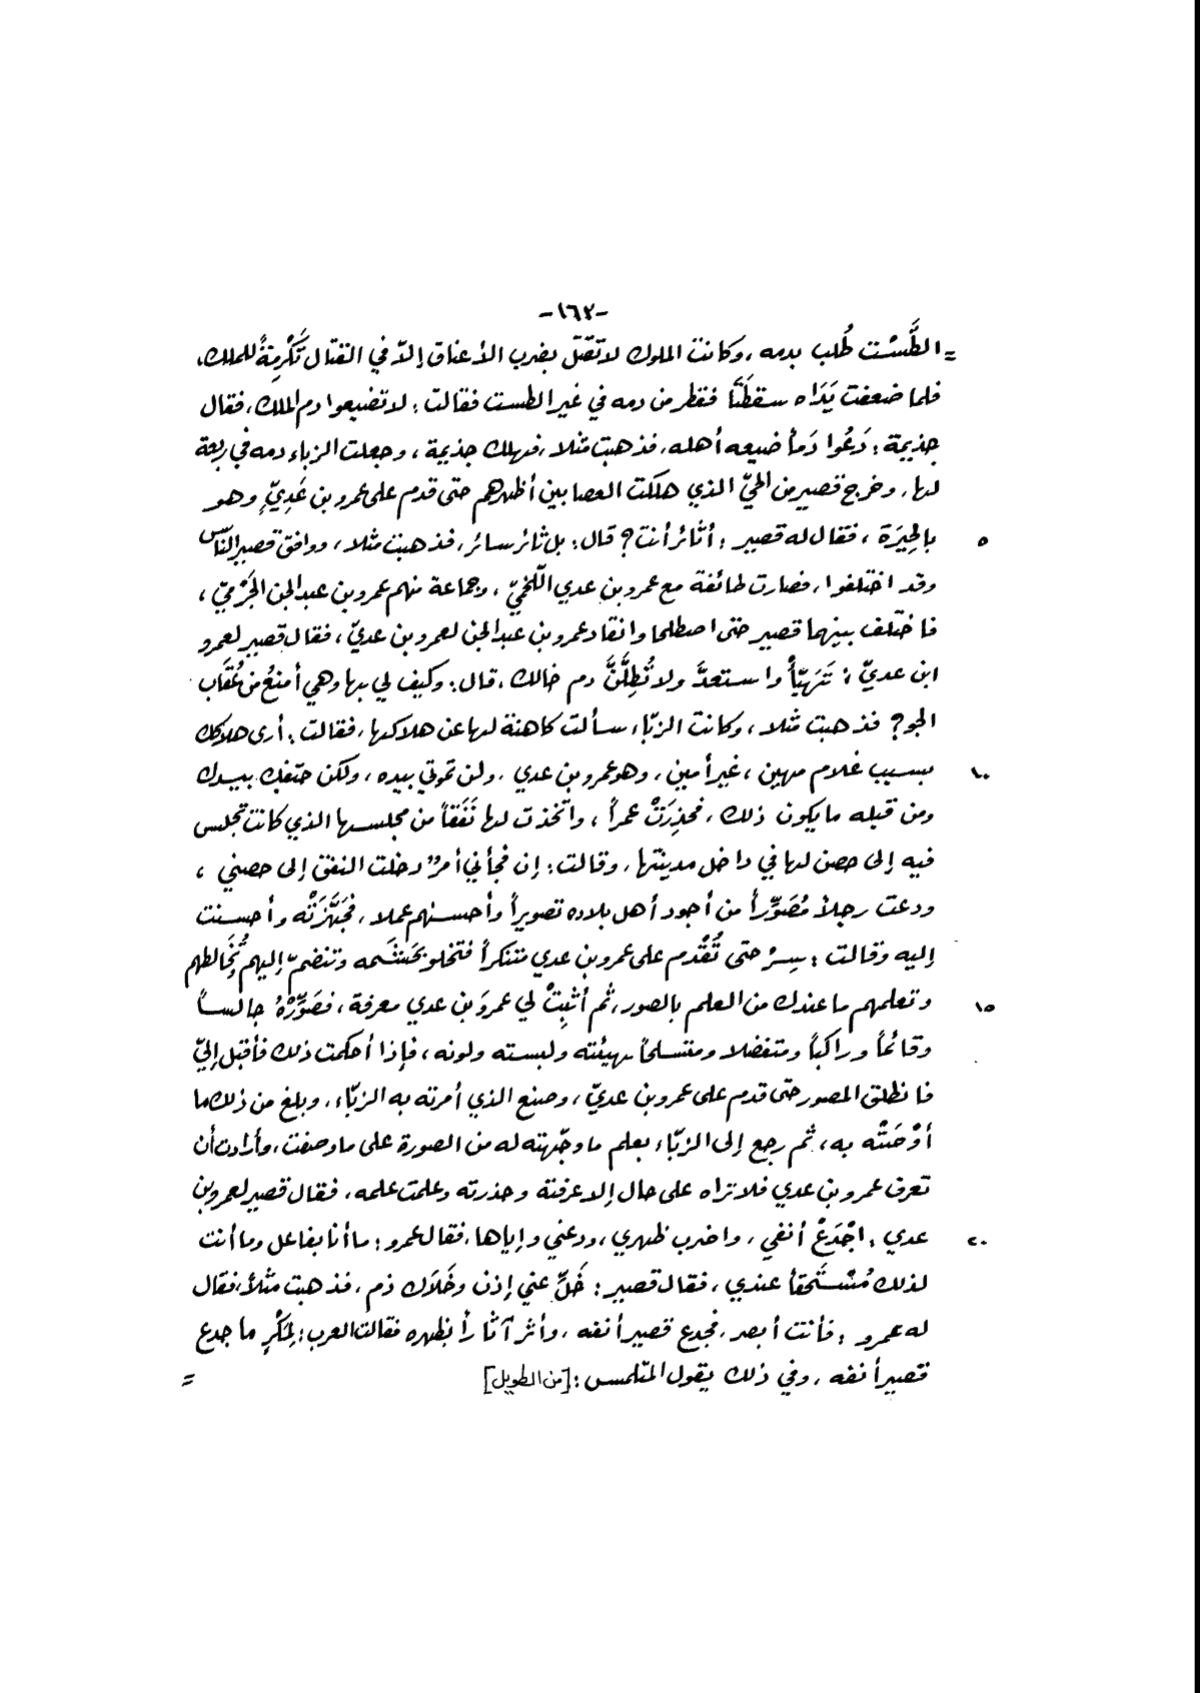 -١٦٣-
= الطَّسْت طُلب بدمه، وكانت الملوك لا تقتل بضرب الأعناق إلّا في القتال تَكْرِمةً للملك،
فلما ضعفت يَدَاه سقطَتَا فقطر من دمه في غير الطست فقالت: لا تضيعوا دم الملك، فقال
جذيمة: دَعُوا دَماً ضيعه أهله، فذهبت مثلا، فهلك جذيمة، وجعلت الزباء دمه في ربعة
لها، وخرج قصير من الحيّ الذي هلكت العصا بين أظهرهم حتى قدم على عمرو بن عَدِيّ، وهو
٥ بالحِيرَة، فقال له قصير: أثائر أنت؟ قال: بل ثائر سائر، فذهبت مثلا، ووافق قصير النّاس
وقد اختلفوا، فصارت طائفة مع عمرو بن عدي اللّخميّ، وجماعة منهم عمرو بن عبد الجن الجَرْميّ،
فاختلف بينهما قصير حتى اصطلحا وانقاد عمرو بن عبد الجن لعمرو بن عديّ، فقال قصير لعمرو
ابن عديّ: تَهَيّأْ واستعدَّ ولا تُطِلَّنَّ دم خالك، قال: وكيف لي بها وهي أمنعُ من عُقَاب
الجو؟ فذهبت مثلا، وكانت الزبّاء سألت كاهنة لها عن هلاكها، فقالت: أرى هلاكك
١٠ بسبب غلام مهين، غير أمين، وهو عمرو بن عدي، ولن تموتي بيده، ولكن حتفك بيدك
ومن قبله ما يكون ذلك، فحذِرَتْ عمراً، واتّخذت لها نَفَقاً من مجلسها الذي كانت تجلس
فيه إلى حصن لها في داخل مدينتها، وقالت: إن فجأني أمرٌ دخلت النفق إلى حصني،
ودعت رجلاً مُصَوِّراً من أجود أهل بلاده تصويراً وأحسنهم عملا، فجَهَّزَتْه وأحسنت
إليه وقالت: سِرْ حتى تَقْدم على عمرو بن عدي متنكراً فتخلو بحَشَمه وتنضمّ إليهم تُخَالطهم
١٥ وتعلمهم ما عندك من العلم بالصور، ثم أثبِتْ لي عمرَو بن عدي معرفة، فصَوِّرْهُ جالساً
وقائماً وراكباً ومتفضلا ومتسلحاً بهيئته ولبسته ولونه، فإذا أحكمت ذلك فأقبل إليّ
فانطلق المصور حتّى قدم على عمرو بن عديّ، وصنع الذي أمرته به الزبّاء، وبلغ من ذلك ما
أوْصَتْه به، ثم رجع إلى الزبّاء بعلم ما وجّهته له من الصورة على ما وصفت، وأرادت أن
تعرف عمرو بن عدي فلا تراه على حال إلا عرفته وحذرته وعلمت علمه، فقال قصير لعمرو بن
٢٠ عدي: اجْدَعْ أنفي، واضرب ظهري، ودعني وإياها، فقال عمرو: ما أنا بفاعل وما أنت
لذلك مُسْتَحقاً عندي، فقال قصير: خَلِّ عني إذن وخَلاَك ذم، فذهبت مثلاً، فقال
له عمرو: فأنت أبصر، فجدع قصير أنفه، وأثر آثاراً بظهره فقالت العرب: لِمَكْرٍ ما جدع
قصير أنفه، وفي ذلك يقول المتلمس: [من الطويل] =